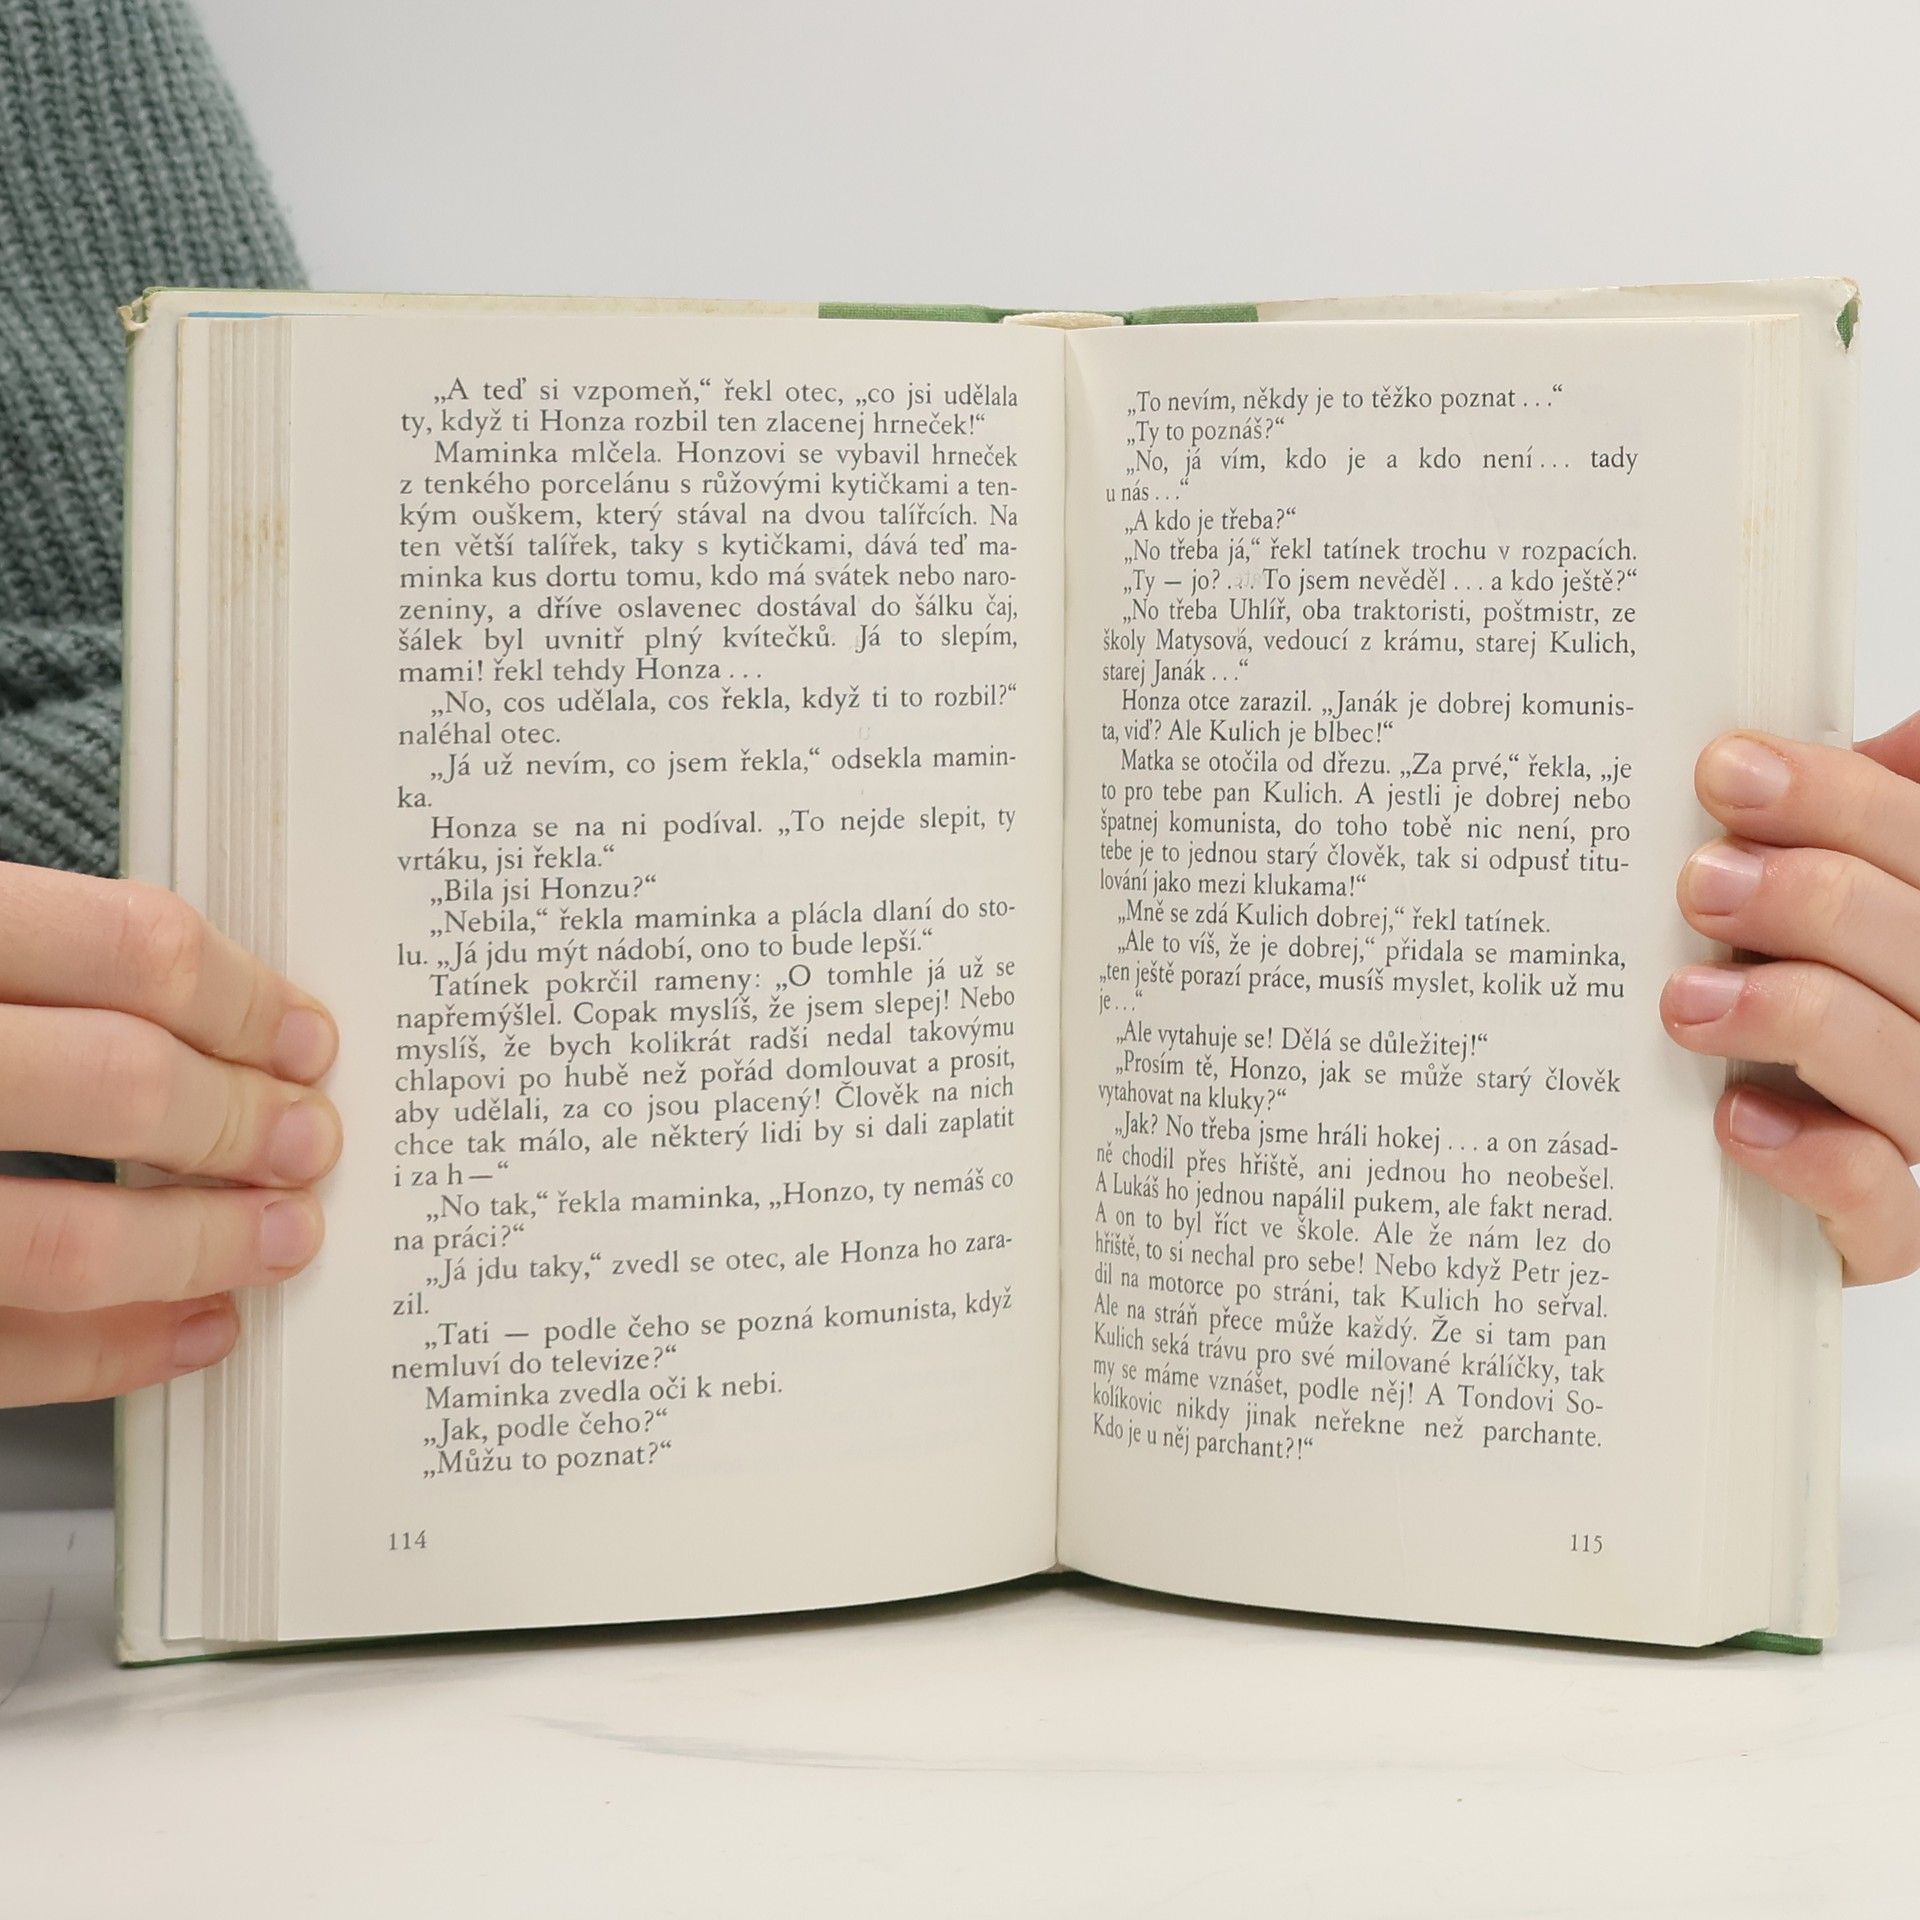 „A teď si vzpomeň,“ řekl otec, „co jsi udělala
ty, když ti Honza rozbil ten zlacenej hrneček!“
Maminka mlčela. Honzovi se vybavil hrneček
z tenkého porcelánu s růžovými kytičkami a ten-
kým ouškem, který stával na dvou talířcích. Na
ten větší talířek, taky s kytičkami, dává teď ma-
minka kus dortu tomu, kdo má svátek nebo naro-
zeniny, a dříve oslavenec dostával do šálku čaj,
šálek byl uvnitř plný kvítečků. Já to slepím,
mami! řekl tehdy Honza . . .
„No, cos udělala, cos řekla, když ti to rozbil?“
naléhal otec.
„Já už nevím, co jsem řekla,“ odsekla mamin-
ka.
Honza se na ni podíval. „To nejde slepit, ty
vrtáku, jsi řekla.“
„Bila jsi Honzu?“
„Nebila,“ řekla maminka a plácla dlaní do sto-
lu. „Já jdu mýt nádobí, ono to bude lepší.“
Tatínek pokrčil rameny: „O tomhle já už se
napřemýšlel. Copak myslíš, že jsem slepej! Nebo
myslíš, že bych kolikrát radši nedal takovýmu
chlapovi po hubě než pořád domlouvat a prosit,
aby udělali, za co jsou placený! Člověk na nich
chce tak málo, ale některý lidi by si dali zaplatit
i za h —“
„No tak,“ řekla maminka, „Honzo, ty nemáš co
na práci?“
„Já jdu taky,“ zvedl se otec, ale Honza ho zara-
zil.
„Tati — podle čeho se pozná komunista, když
nemluví do televize?“
Maminka zvedla oči k nebi.
„Jak, podle čeho?“
„Můžu to poznat?“
114
„To nevím, někdy je to těžko poznat . . .“
„Ty to poznáš?“
„No, já vím, kdo je a kdo není . . . tady
u nás . . .“
„A kdo je třeba?“
„No třeba já,“ řekl tatínek trochu v rozpacích.
„Ty — jo? . . . To jsem nevěděl . . . a kdo ještě?“
„No třeba Uhlíř, oba traktoristi, poštmistr, ze
školy Matysová, vedoucí z krámu, starej Kulich,
starej Janák . . .“
Honza otce zarazil. „Janák je dobrej komunis-
ta, viď? Ale Kulich je blbec!“
Matka se otočila od dřezu. „Za prvé,“ řekla, „je
to pro tebe pan Kulich. A jestli je dobrej nebo
špatnej komunista, do toho tobě nic není, pro
tebe je to jednou starý člověk, tak si odpusť titu-
lování jako mezi klukama!“
„Mně se zdá Kulich dobrej,“ řekl tatínek.
„Ale to víš, že je dobrej,“ přidala se maminka,
„ten ještě porazí práce, musíš myslet, kolik už mu
je . . .“
„Ale vytahuje se! Dělá se důležitej!“
„Prosím tě, Honzo, jak se může starý člověk
vytahovat na kluky?“
„Jak? No třeba jsme hráli hokej . . . a on zásad-
ně chodil přes hřiště, ani jednou ho neobešel.
A Lukáš ho jednou napálil pukem, ale fakt nerad.
A on to byl říct ve škole. Ale že nám lez do
hřiště, to si nechal pro sebe! Nebo když Petr jez-
dil na motorce po stráni, tak Kulich ho seřval.
Ale na stráň přece může každý. Že si tam pan
Kulich seká trávu pro své milované králíčky, tak
my se máme vznášet, podle něj! A Tondovi So-
kolíkovic nikdy jinak neřekne než parchante.
Kdo je u něj parchant?!“
115